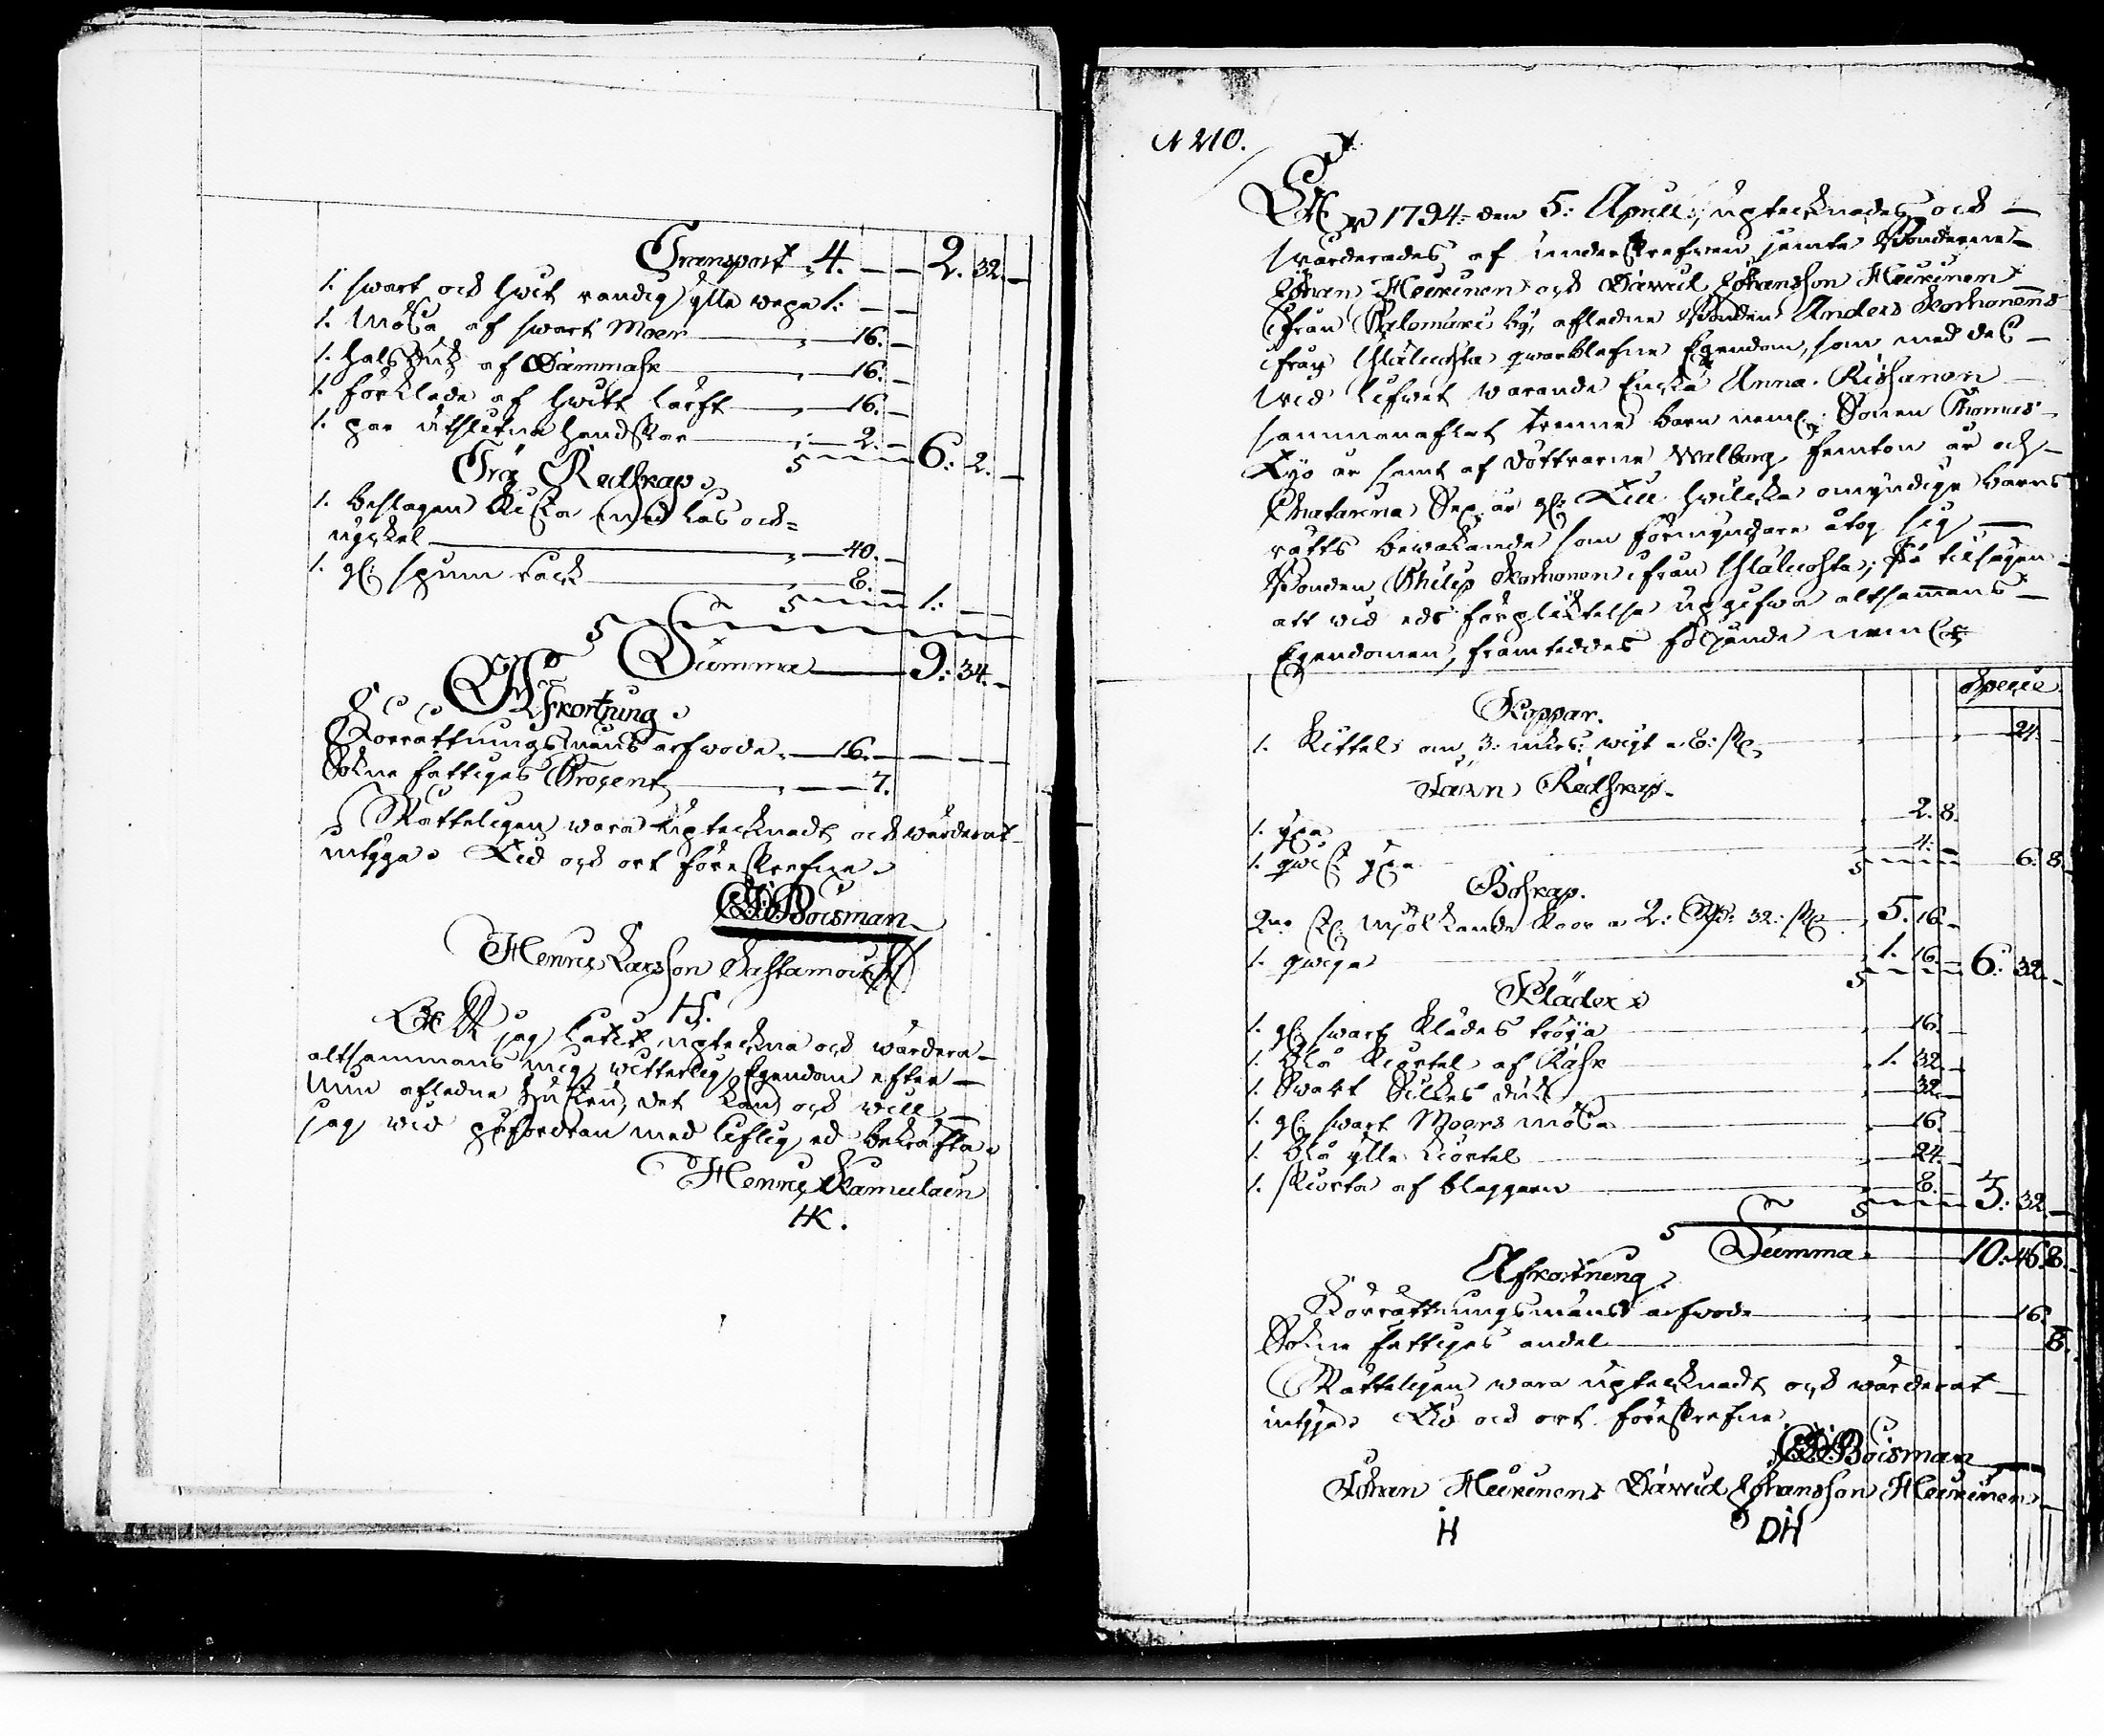 Transport 4. — — 2. 32. —
1. swart och hwit randig ylle wepa 1: — —
1. Mössa af swart Moer — 16. —
1. halsduk af Dammask — 16. —
1. förkläde af hwitt lärft — 16. —
1. par utslitna handskar — 2. — 6: 2. —
Trä Redskap.
1. beslagen Kista med lås och=
nyckel — 40. —
1. gl: spinn råck — 8. — 1: — —
Summa — 9: 34. —
Afkortning
Förrättningsmans arfwode — 16. — — —
Sokne fattigas Procent — 7.
Rätteligen wara uptecknadt och wärderat
intyga. Tid och ort föreskrefne.
Boisman
Henric Larsson Sastamoin
HS.
Att jag låtit uptekna och wärdera
altsammans mig witterlig Egendom efter
min afledne hustru, det kan och will
jag wid påfordran med liflig ed bekräfta.
Henric Kamulain
HK.
N 210.
Åhr 1794: den 5: April, uptecknades och
wärderades af underskrefven jemte Bonderne
Johan Heickinen och Dawid Johansson Heickinen
ifrån Salomäki by, afledne Bonden Anders Korhonens
ifrån qwarblefne Egendom, som med dess
wid lifwet warande Encka Anna Rissanen
sammanaflat trenne barn neml: Sonen Thomas
Tijo år samt af döttrarne Walborg femton år och
Chatarina Sex år gl: Till hwilcka omyndige barns
rätts bewakande som förmyndare åtog sig
Bonden Philip Korhonen ifrån På tilsäjen
att wid eds förpliktelse uppgifwa altsammans
Egendomen, framteddes följande neml:
Specie
Koppar.
1. Kittel om 3: wigt a 8: — 24.
Järn Redskap.
1. yxa — 2. 8.
1. qwist yxa — 4. — 6. 8.
Boskap.
2ne st: Mjölkande Koor a 2: Rd: 32: s — 5. 16. —
1. qwiga — 1. 16. — 6: 32. —
Kläder
1. gl: swart Klädes tröija — 16. —
1. blå Kiortel af Rask — 1. 32. —
1. Swart Silkes duk — 32. —
1. gl: swart Moers mössa — 16. —
1. blå ylle Kiortel — 24. —
1. skiorta af blaggarn — 8. — 3: 32. —
Summa — 10: 46. 8.
Afkortning
Förrättningsmans arfwode — 16. —
Sokne fattigas andel — 8.
Rätteligen wara uptecknadt och wärderat
intyga. Tid och ort föreskrefne.
Boisman
Johan Heickinen Dawid Johansson Heickinen
H DH